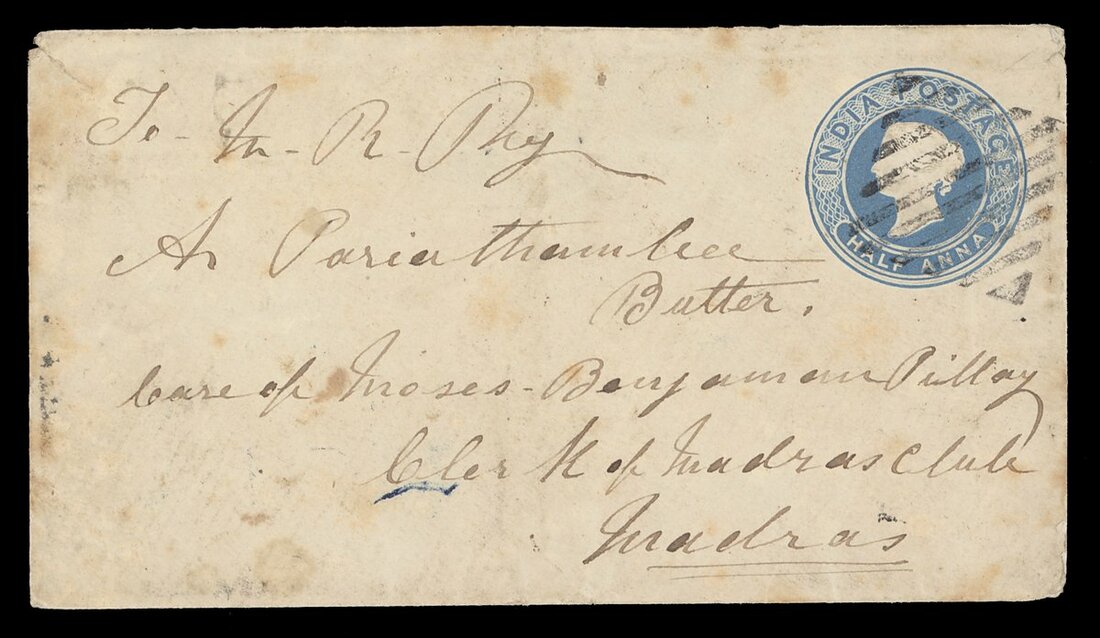 INDIA POSTAGE
HALF ANNA
To - M - R - Ry
A Pariathambee
Butter,
Care of Moses - Benjaman Pillay
Clerk of Madras Club
Madras